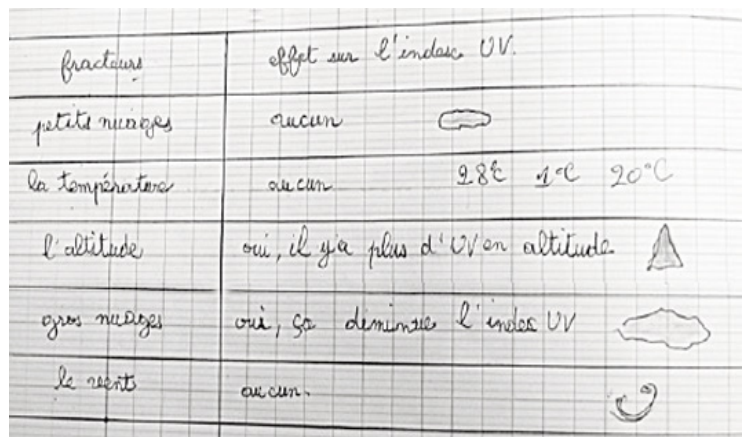 fracteurs effet sur l'index UV.
petits nuages aucun
la température aucun 28°C 1°C 20°C
l'altitude oui, il y'a plus d'UV en altitude
gros nuages oui, ça diminue l'index UV
le vent aucun.